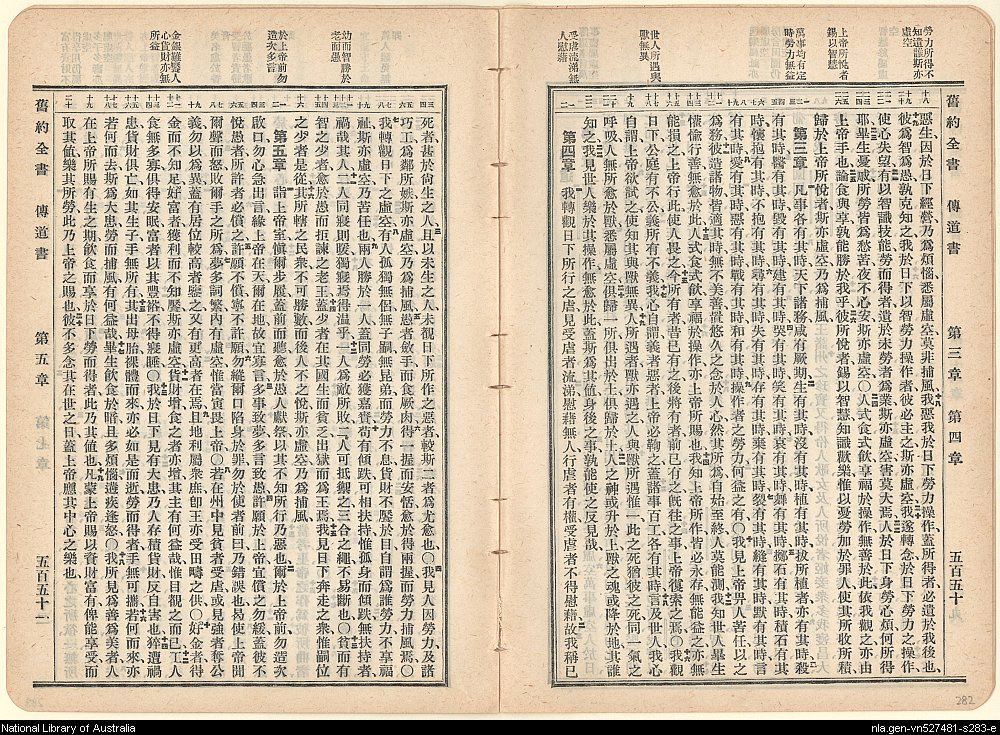 勞力所得不
知遺誰斯亦
虛空
上帝所悅者
錫以智慧
萬事均有定
時勞力無益
世人所遇與
獸無異
受虐流涕無
人慰藉
舊約全書 傳道書 第三章 第四章 五百五十
惡生因於日下經營乃爲煩惱悉屬虛空莫非捕風我惡我於日下勞力操作蓋所得者必遺於我後也
彼爲智爲愚孰克知之我於日下以智勞力操作者彼必主之斯亦虛空我遂轉念於日下勞力之操作
使心失望有以智識技能勞而得者遺於未勞者爲業斯亦虛空害莫大焉人於日下身勞心煩何所得
耶畢生憂戚所勞皆爲愁苦夜不心安斯亦虛空〇人式食式飲享福於操作無善於此依我觀之亦由
上帝手也論食與享孰能勝於我乎彼所悅者錫以智慧知識歡樂惟以憂勞加於罪人使其所收所積
歸於上帝所悅者斯亦虛空乃爲捕風
第三章 凡事各有其時天下諸務咸有厥期生有其時沒有其時植有其時拔所植者亦有其時殺
有其時醫有其時毀有其時建有其時哭有其時笑有其時哀有其時舞有其時擲石有其時積石有其
時懷抱有其時不抱有其時尋有其時失有其時存有其時棄有其時裂有其時縫有其時默有其時言
有其時愛有其時惡有其時戰有其時和有其時操作者之勞力何益之有〇我見上帝畀人苦任以之
爲務彼造諸物皆適其時無不美善置悠久之念於人心然其所爲自始至終人莫能測我知世人畢生
懽愉行善而外無愈於此人式食式飲享福於操作亦上帝所賜也我知上帝所作皆必永存無能益之亦無
能損之上帝行此使人畏之今所有者昔已有之後將有者前已有之旣往之事上帝復索之焉〇我觀
日下公庭有不公義所有不義我心自謂義者惡者上帝必鞫之蓋諸事百工各有其時言及世人我心
自謂上帝欲試之使知其與獸無異人所遇者獸亦遇之人與獸所遇惟一此之死猶彼之死同一氣之
呼吸人無所愈於獸悉屬虛空俱歸一所俱出於土俱歸於土人之神或升於上獸之魂或降於地其誰
知之我思世人樂於其操作無愈於此蓋斯爲其値身後之事孰能使之反見哉
第四章 我轉觀日下所行之虐見受虐者流涕慰藉無人行虐者有權受虐者不得慰藉故我稱已
幼而智勝於
老而愚
於上帝前勿
造次多言
金銀難饜人
心貨財亦無
所益
死者甚於尙生之人且以未生之人未觀日下所作之惡者較斯二者爲尤愈也〇我見人因勞力及諸
巧工爲鄰所嫉斯亦虛空乃爲捕風愚者斂手而食厥肉得一握而安恬愈於得兩握而勞力捕風焉〇
我轉觀日下之虛空有人孤獨無侶無子嗣無昆弟而勞力不息貨財不饜於目自謂爲誰勞力不享福
祉斯亦虛空乃苦任也兩人勝於一人蓋同勞必獲嘉賚苟有傾跌可相扶持惟孤身而傾跌無扶持者
禍哉其人二人同寢則暖獨寢焉得溫乎一人爲敵所敗二人可抵禦之三合之繩不易斷也〇貧而有
智之少者愈於愚而拒諫之老王蓋少者在其國生而貧乏出獄而爲王焉我見日下奔走之衆惟嗣位
之少者是從其所轄之民衆不可勝數而後人不之悅斯亦虛空乃爲捕風
第五章 詣上帝室愼爾步履蓋前而聽愈於愚人獻祭以其不知所行乃惡也爾於上帝前勿造次
啟口勿心急出言緣上帝在天爾在地故宜寡言多事致夢多言致愚許願於上帝宜償之勿緩蓋彼不
悅愚者所許者必償之許願不償寧不許願勿縱爾口陷身於罪勿於使者前曰乃錯誤也曷使上帝聞
爾聲而怒敗爾手之所爲夢多詞繁內有虛空惟當寅畏上帝〇若在州中見貧者受虐或見強者奪公
義勿以爲異蓋有居位較高者鑒之又有更高者在焉且地利屬衆庶卽王亦受田疇之供〇好金者得
金而不知足好富者獲利而不知饜斯亦虛空貨財增食之者亦增其主有何益哉惟目觀之而已工人
食無多寡俱得安眠富者以其豐裕不得寢睡〇我於日下見有大患乃人存積貨財反自害也猝遭禍
患貨財俱亡如其生子手無所有其出母胎裸體而來亦必如是而逝勞而得者手無可攜若何而來亦
若何而去斯爲大患勞而捕風有何益哉畢生飲食於暗且多煩惱遘疾逢怒〇我所見爲善爲美者人
在上帝所賜有生之期飲食而享於日下勞而得者此乃其値也凡蒙上帝賜以貲財富有俾能享受而
取其値樂其所勞此乃上帝之賜也彼不多念其在世之日蓋上帝應其中心之樂也
舊約全書 傳道書 第五章 五百五十一
282
National Library of Australia
nla.gen-vn527481-s283-e